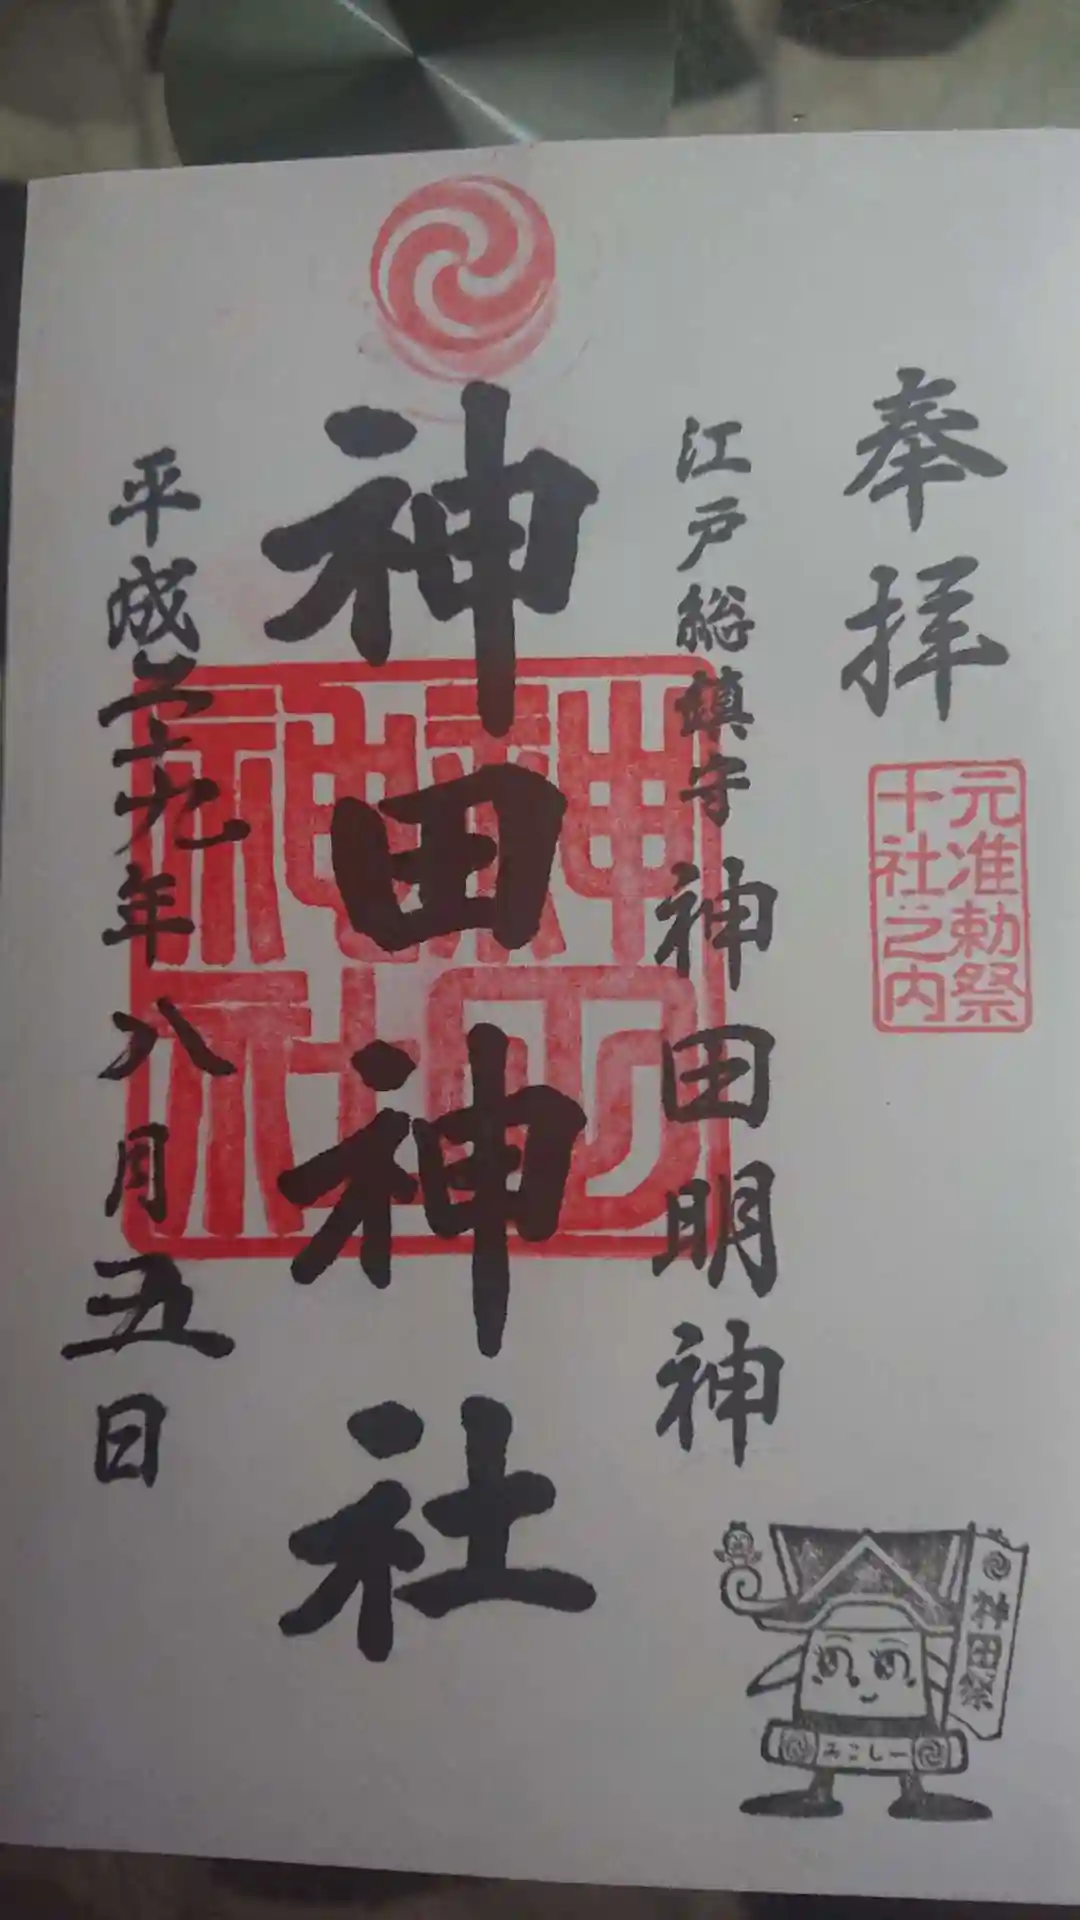 奉拝
元准勅祭
十社之内
江戸総鎮守 神田明神
神田神社
平成二十九年八月五日
神田祭
みこしー